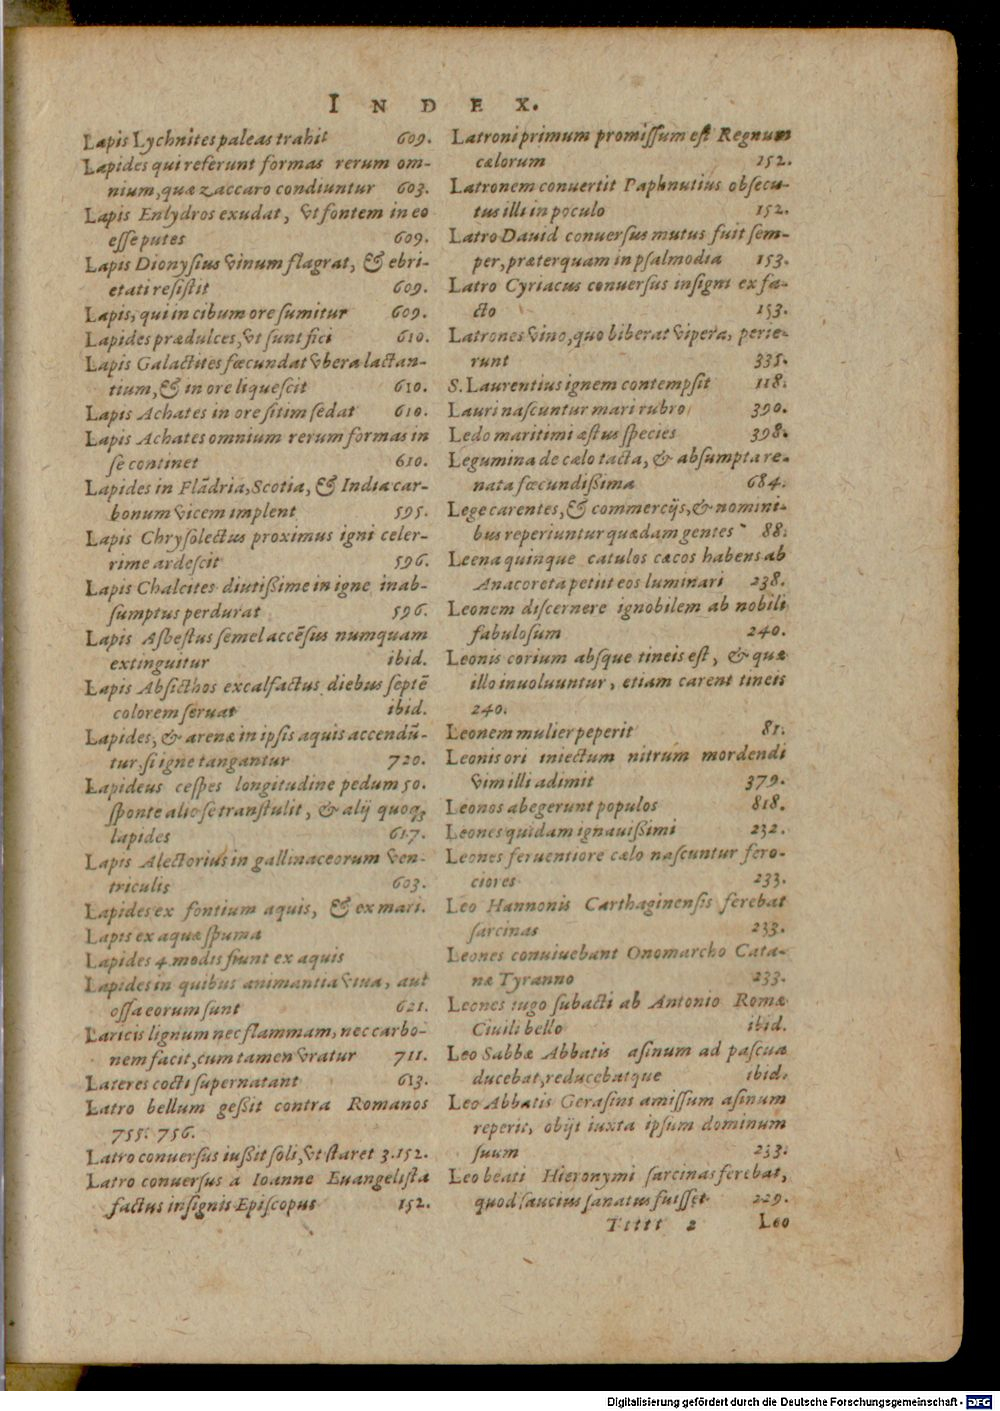 INDEX.
Lapis Lychnites paleas trahit 609.
Lapides qui referunt formas rerum om-
nium, quæ zaccaro condiuntur 603.
Lapis Enhydros exudat, vt fontem in eo
esse putes 609.
Lapis Dionysius vinum flagrat, & ebri-
etati resistit 609.
Lapis, qui in cibum ore sumitur 609.
Lapides prædulces, vt sunt fici 610.
Lapis Galactites fœcundat vbera lactan-
tium, & in ore liquescit 610.
Lapis Achates in ore sitim sedat 610.
Lapis Achates omnium rerum formas in
se continet 610.
Lapides in Flãdria, Scotia, & India car-
bonum vicem implent 595.
Lapis Chrysolectus proximus igni celer-
rime ardescit 596.
Lapis Chalcites diutißime in igne inab-
sumptus perdurat 596.
Lapis Asbestus semel accẽsus numquam
extinguitur ibid.
Lapis Absicthos excalfactus diebus septẽ
colorem seruat ibid.
Lapides, & arenæ in ipsis aquis accendũ-
tur, si igne tangantur 720.
Lapideus cespes longitudine pedum 50.
sponte alio se transtulit, & alij quoq;
lapides 617.
Lapis Alectorius in gallinaceorum ven-
triculis 603.
Lapides ex fontium aquis, & ex mari.
Lapis ex aquæ spuma
Lapides 4. modis fiunt ex aquis
Lapides in quibus animantia viua, aut
ossa eorum sunt 621.
Laricis lignum nec flammam, nec carbo-
nem facit, cum tamen vratur 711.
Lateres cocti supernatant 613.
Latro bellum geßit contra Romanos
755. 756.
Latro conuersus iußit soli, vt staret 3.152.
Latro conuersus a Ioanne Euangelista
factus insignis Episcopus 152.
Latroni primum promissum est Regnum
cælorum 152.
Latronem conuertit Paphnutius obsecu-
tus illi in poculo 152.
Latro Dauid conuersus mutus fuit sem-
per, præterquam in psalmodia 153.
Latro Cyriacus conuersus insigni ex fa-
cto 153.
Latrones vino, quo biberat vipera, perie-
runt 335.
S. Laurentius ignem contempsit 118.
Lauri nascuntur mari rubro 390.
Ledo maritimi æstus species 398.
Legumina de cælo tacta, & absumpta re-
nata fœcundißima 684.
Lege carentes, & commercijs, & nomini-
bus reperiuntur quædam gentes 88.
Leena quinque catulos cæcos habens ab
Anacoreta petiit eos luminari 238.
Leonem discernere ignobilem ab nobili
fabulosum 240.
Leonis corium absque tineis est, & quæ
illo inuoluuntur, etiam carent tineis
240.
Leonem mulier peperit 81.
Leonis ori iniectum nitrum mordendi
vim illi adimit 379.
Leones abegerunt populos 818.
Leones quidam ignauißimi 232.
Leones feruentiore cælo nascuntur fero-
ciores 233.
Leo Hannonis Carthaginensis ferebat
sarcinas 233.
Leones conuiuebant Onomarcho Cata-
næ Tyranno 233.
Leones iugo subacti ab Antonio Romæ
Ciuili bello ibid.
Leo Sabbæ Abbatis asinum ad pascua
ducebat, reducebatque ibid.
Leo Abbatis Gerasini amissum asinum
reperit, obijt iuxta ipsum dominum
suum 233.
Leo beati Hieronymi sarcinas ferebat,
quod saucius sanatus fuisset 229.
Tttt 2 Leo
Digitalisierung gefördert durch die Deutsche Forschungsgemeinschaft - DFG